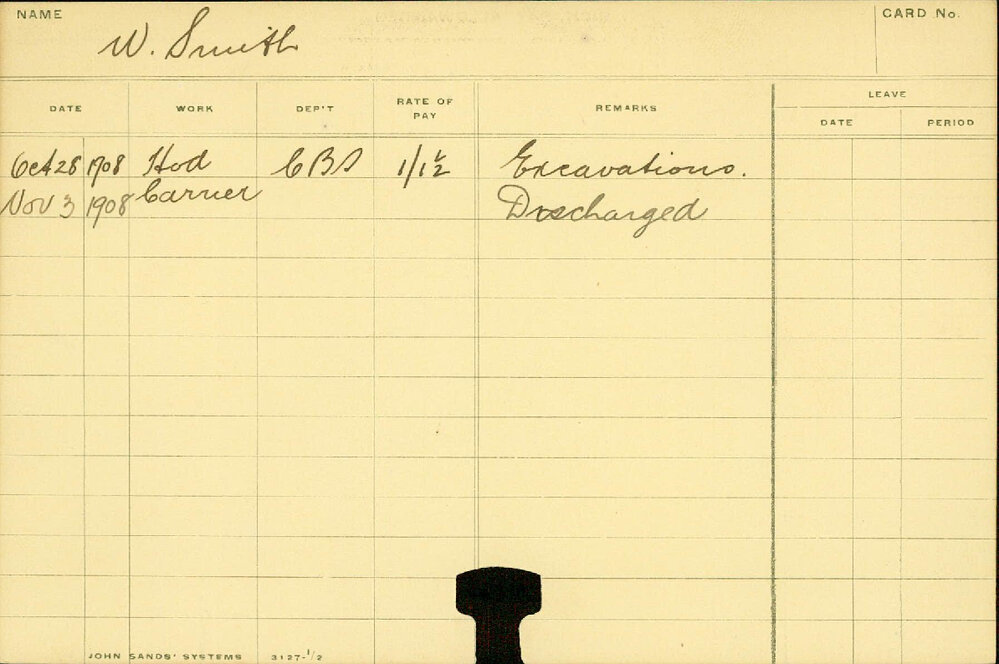 NAME
CARD No.
W. Smith
DATE WORK DEP'T RATE OF PAY REMARKS LEAVE
DATE PERIOD
Oct 28 1908 Hod CBS 1/1½ Excavations.
Nov 3 1908 Carrier Discharged
JOHN SANDS' SYSTEMS 3127-1/2